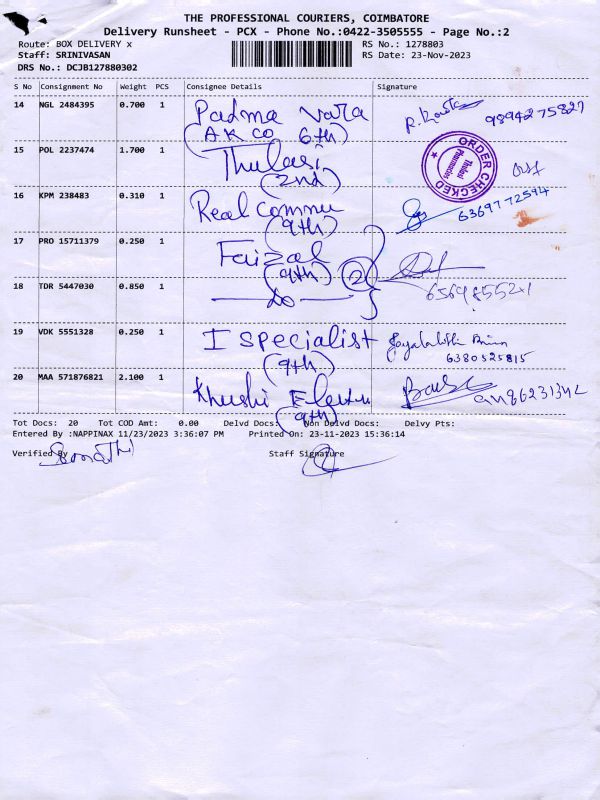 THE PROFESSIONAL COURIERS, COIMBATORE
Delivery Runsheet - PCX - Phone No.:0422-3505555 - Page No.:2
Route: BOX DELIVERY x RS No.: 1278803
Staff: SRINIVASAN RS Date: 23-Nov-2023
DRS No.: DCJB127880302
S No Consignment No Weight PCS Consignee Details Signature
14 NGL 2484395 0.700 1 Padma Vara 9894275827
(AK CO 6th)
15 POL 2237474 1.700 1 Thulasi
(2nd)
ORDER CHECKED
Thulasi
Pharmacies
16 KPM 238483 0.310 1 Real commu 6369772594
(9th)
17 PRO 15711379 0.250 1 Faizal
(9th) 2
18 TDR 5447030 0.850 1 Do
19 VDK 5551328 0.250 1 I specialist
(9th) 6380525815
20 MAA 571876821 2.100 1 Khushi
(9th)
Tot Docs: 20 Tot COD Amt: 0.00 Delvd Docs: Non Delvd Docs: Delvy Pts:
Entered By :NAPPINAX 11/23/2023 3:36:07 PM Printed On: 23-11-2023 15:36:14
Verified By Staff Signature